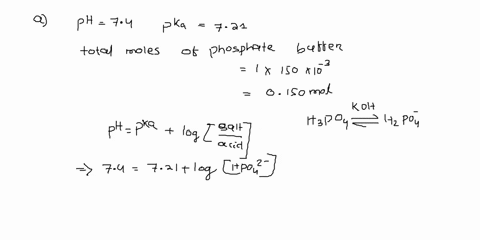 a) pH = 7.4 pKa = 7.21
total moles of phosphate buffer
= 1 × 150 × 10⁻³
= 0.150 mol
H₃PO₄ ⇌ H₂PO₄⁻
KOH
pH = pKa + log [salt/acid]
⇒ 7.4 = 7.21 + log [HPO₄²⁻]